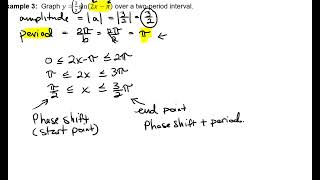 xample 3: Graph y = 3/2 sin(2x − π) over a two-period interval.
amplitude = |a| = |3/2| = 3/2
period = 2π/b = 2π/2 = π ←
0 ≤ 2x-π ≤ 2π
π ≤ 2x ≤ 3π
π/2 ≤ x ≤ 3/2 π
Phase shift
(start point)
end point
Phase shift + period.